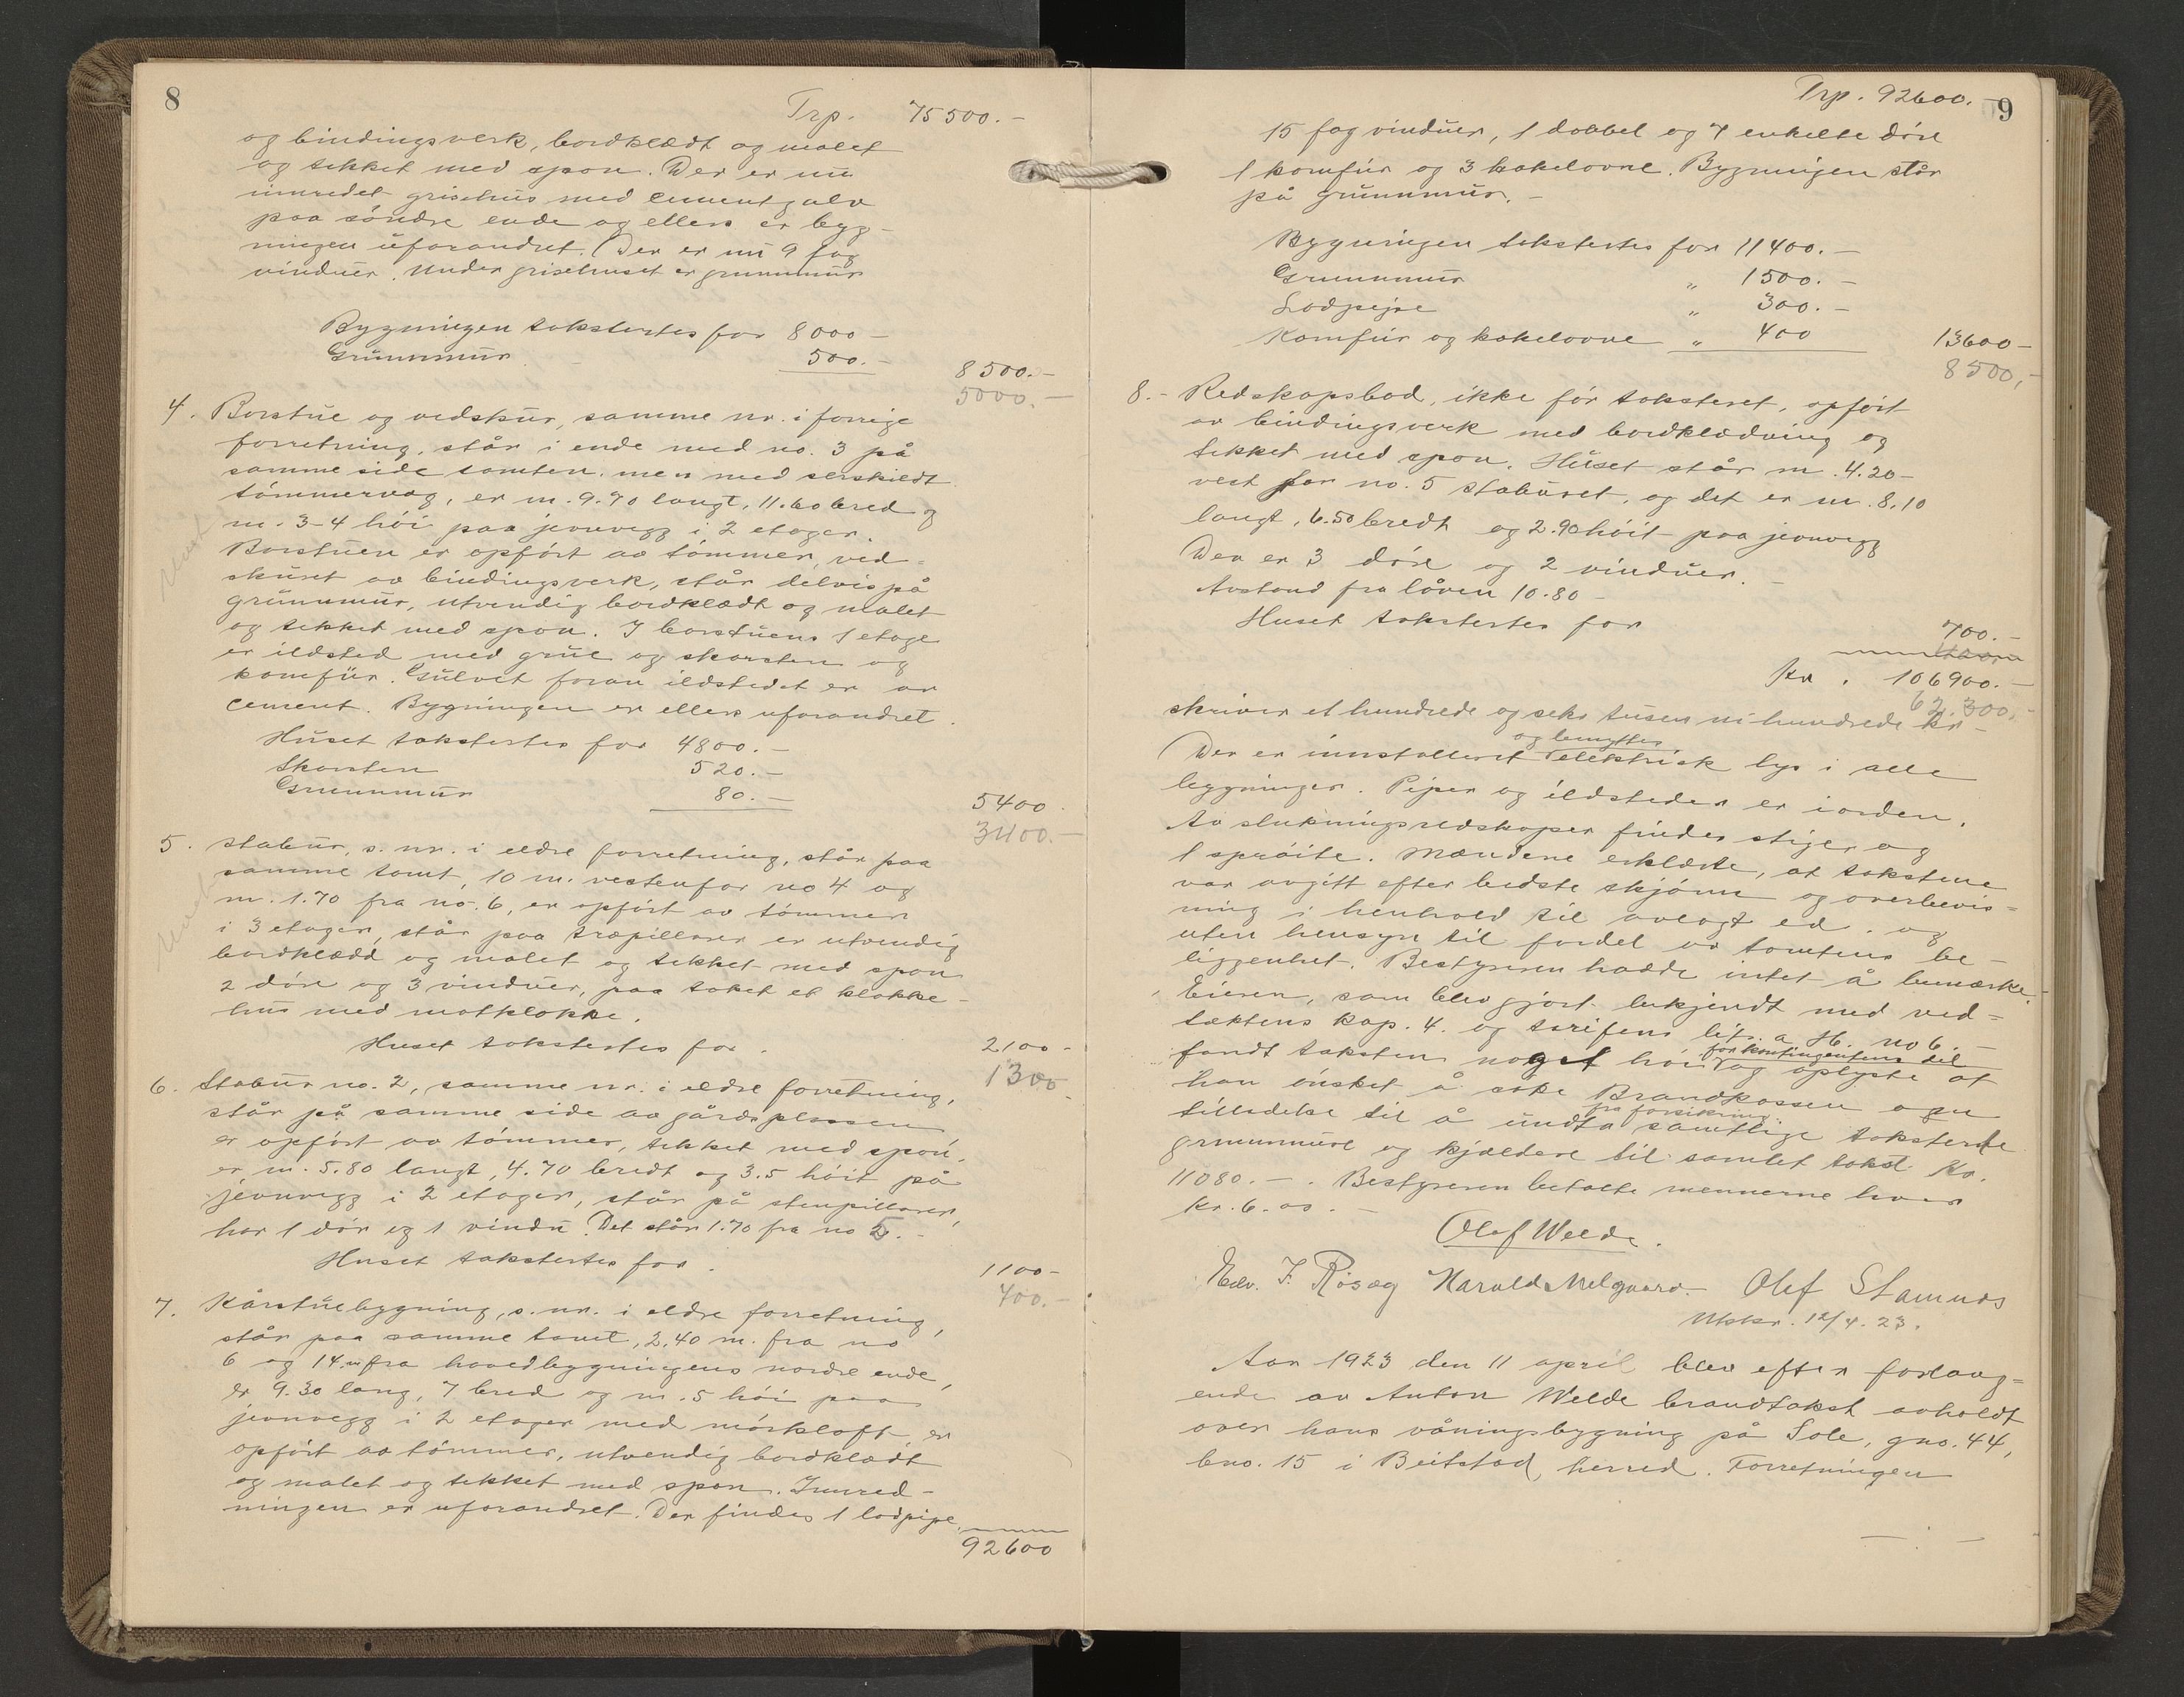 8
Trp. 75500.-
og bindingsverk, bordklædt og malet
og tekket med spon. Der er nu
innredet grisehus med cementgulv
paa söndre ende og ellers er byg-
ningen uforandret. Der er nu 9 fag
vinduer. Under grisehuset er grunnmur
Bygningen takstertes for 8000 -
Grunnmur 500.-
8500.-
5000.-
4. Borstue og vedskur, samme nr. i forrige
forretning, står i ende med no. 3 på
samme side tomten, men med serskiedt
tömmervæg, er m. 9.70 langt, 11.60 bred og
m. 3-4 höi paa jevnvegg i 2 etager.
Borstuen er opfört av tömmer, ved-
skuret av bindingsverk, står delvis på
grunnmur, utvendig bordklædt og malet
og tekket med spon. I borstuens 1 etage
er ildsted med grue og skorsten og
komfür. Gulvet foran ildstedet er av
cement. Bygningen er ellers uforandret.
Huset takstertes for 4800.-
Skorsten 520.-
Grunnmur 80.-
5400
3400.-
5. Stabur, s. nr. i eldre forretning, står paa
samme tomt, 10 m. vestenfor no 4 og
m. 1.70 fra no. 6, er opfört av tömmer
i 3 etager, står paa træpillarer er utvendig
bordklædd og malet og tekket med spon
2 döre og 3 vinduer, paa taket et klokke-
hus med matklokke.
Huset takstertes for. 2100 -
1300
6. Stabur no. 2, samme nr. i eldre forretning,
står på samme side av gårdsplassen
er opfört av tömmer, tekket med spon,
er m. 5.80 langt, 4.70 bredt og 3.5 höit på
jevnvegg i 2 etager, står på stenpillarer,
har 1 dör og 1 vindu. Det står 1.70 fra no 5.-
Huset takstertes for. 1100 -
700.-
7. Kårstuebygning, s. nr. i eldre forretning,
står paa samme tomt, 2,40 m. fra no
6 og 14 m fra hovedbygningens nordre ende,
er 9.30 lang, 7 bred og m. 5 höi paa
jevnvegg i 2 etager med mörkloft, er
opfört av tömmer, utvendig bordklædt
og malet og tekket med spon. Innred-
ningen er uforandret. Der findes 1 lodpipe,
92600
Trp. 92600.- 9
15 fag vinduer, 1 dobbel og 7 enkelte döre
1 komfur og 3 kakelovne. Bygningen står
på grunnmur.-
Bygningen takstertes for 11400.-
Grunnmur " 1500.-
Lodpipe " 300.-
Komfur og kakelovne " 400
13600 -
8500,-
8.- Redskapsbod, ikke för taksteret, opfört
av bindingsverk med bordklædning og
tekket med spon. Huset står m. 4.20 -
vest for no. 5 staburet, og det er m. 8.10
langt, 6.50 bredt og 2.90 höit paa jevnvegg
Der er 3 döre og 2 vinduer.-
Avstand fra låven 10.80 -
Huset takstertes for
700.-
Kr. 106900.-
62.300.-
skriver et hundrede og seks tusen ni hundrede kr -
og benyttes
Der er innstalleret elektrisk lys i alle
bygninger. Piper og ildsteder er i orden.
Av slukningsredskaper findes stiger og
1 spröite. Mændene erklærte, at takstene
var avgitt efter bedste skjönn og overbevis-
ning i henhold til avlagt ed, og
uten hensyn til fordel av tomtens be-
liggenhet. Bestyreren hadde intet å bemærke.
Eieren, som blev gjort bekjendt med ved-
tæktens kap. 4. og tarifens litr. a H. no 6.-
for kontingentens del
fandt taksten noget höi og oplyste at
han önsket å söke Brandkassen om
fra forsikring
tilladelse til å undta samtlige taksterte
grunnmure og kjældere til samlet takst Kr.
11080.-. Bestyreren betalte mennerne hver
kr. 6.00.-
Olaf Welde.
Edv. F. Rösæg Harald Melgaard.- Olef Stamnes
Utskr. 12/4. 23.
Aar 1923 den 11 april blev efter forlang-
ende av Anton Welde brandtakst avholdt
over hans våningsbygning på Sole, gno. 44,
bno. 15 i Beitstad, herred. Forretningen